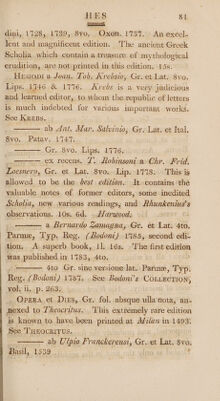 HES 81
dini, 1728, 1739, 8vo. Oxon. 1737. An excel-
lent and magnificent edition. The ancient Greek
Scholia which contain a treasure of mythological
erudition, are not printed in this edition. 15s.
HESIODI a Joan. Tob. Krebsio, Gr. et Lat. 8vo.
Lips. 1746 & 1776. Krebs is a very judicious
and learned editor, to whom the republic of letters
is much indebted for various important works.
See KREBS.
——— ab Ant. Mar. Salvinio, Gr. Lat. et Ital.
8vo. Patav. 1747.
——— Gr. 8vo. Lips. 1776.
——— ex recens. T. Robinsoni a Chr. Frid.
Loesnero, Gr. et Lat. 8vo. Lip. 1778. This is
allowed to be the best edition. It contains the
valuable notes of former editors, some inedited
Scholia, new various readings, and Rhunkenius's
observations. 10s. 6d. Harwood.
——— a Bernardo Zamagna, Gr. et Lat. 4to.
Parmæ, Typ. Reg. (Bodoni) 1785, second edi-
tion. A superb book, 1l. 16s. The first edition
was published in 1783, 4to.
——— 4to Gr. sine versione lat. Parmæ, Typ.
Reg. (Bodoni) 1787. See Bodoni's COLLECTION,
vol. ii, p. 263.
OPERA et DIES, Gr. fol. absque ulla nota, an-
nexed to Theocritus. This extremely rare edition
is known to have been printed at Milan in 1493.
See THEOCRITUS.
——— ab Ulpio Franckerensi, Gr. et Lat. 8vo.
Basil, 1539